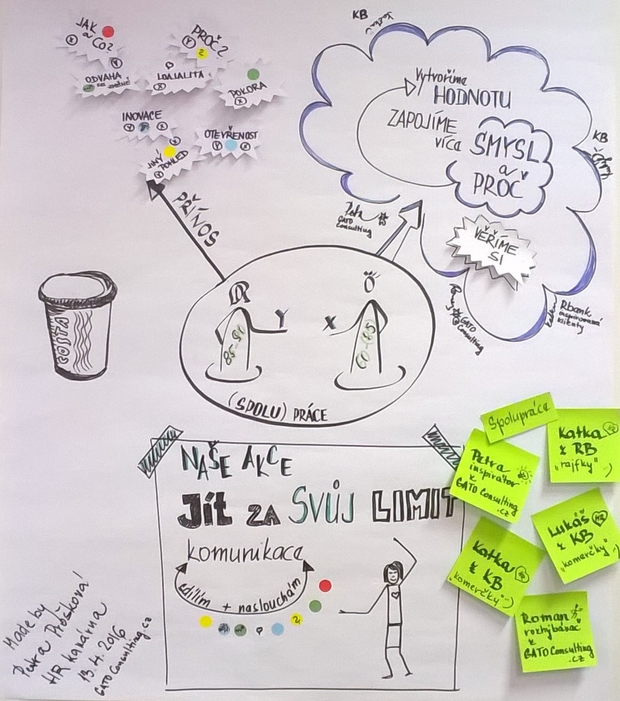 JAK
a CO?
PROČ?
ODVAHA
LOAJALITA
POKORA
INOVACE
OTEVŘENOST
JINÝ
POHLED
PŘÍNOS
KB
Vytvoříme
HODNOTU
ZAPOJÍME
více
SMYSL
a
PROČ
KB
Petra
GATO
Consulting
VĚŘÍME
SI
GATO
Consulting
Rbank
klienty
COSTA
Y
X
85-90
60-65
(SPOLU) PRÁCE
NAŠE AKCE
Jít ZA SVŮJ LIMIT
komunikace
sdílím + naslouchám
Spolupráce
Petra
inspirátor
z
GATO Consulting
.cz
Katka
z RB
"rajfky" :-)
Lukáš
z KB
"komerčky"
Katka
z KB
"komerčky" :-)
Roman
rozhýbávač
z
GATO Consulting
.cz
Made by
Petra Prošková
HR kavárna
19.4.2016
GATO Consulting.cz